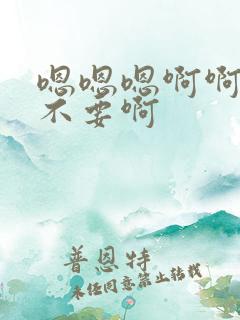 嗯嗯嗯啊啊
不要啊
普恩特
未经同意禁止转载